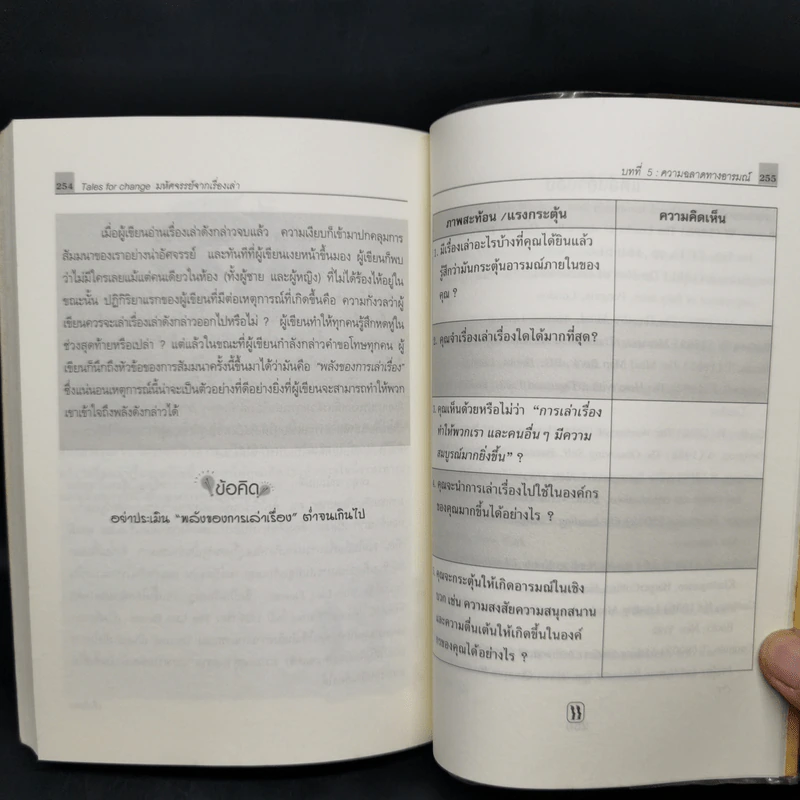 254 Tales for change มหัศจรรย์จากเรื่องเล่า
เมื่อผู้เขียนอ่านเรื่องเล่าดังกล่าวจบแล้ว ความเงียบก็เข้ามาปกคลุมการ
สัมมนาของเราอย่างน่าอัศจรรย์ และทันทีที่ผู้เขียนเงยหน้าขึ้นมอง ผู้เขียนก็พบ
ว่าไม่มีใครเลยแม้แต่คนเดียวในห้อง (ทั้งผู้ชาย และผู้หญิง) ที่ไม่ได้ร้องไห้อยู่ใน
ขณะนั้น ปฏิกิริยาแรกของผู้เขียนที่มีต่อเหตุการณ์ที่เกิดขึ้นคือ ความกังวลว่าผู้
เขียนควรจะเล่าเรื่องเล่าดังกล่าวออกไปหรือไม่ ? ผู้เขียนทำให้ทุกคนรู้สึกหดหู่ใน
ช่วงสุดท้ายหรือเปล่า ? แต่แล้วในขณะที่ผู้เขียนกำลังกล่าวคำขอโทษทุกคน ผู้
เขียนก็นึกถึงหัวข้อของการสัมมนาครั้งนี้ขึ้นมาได้ว่ามันคือ "พลังของการเล่าเรื่อง"
ซึ่งแน่นอนเหตุการณ์นี้น่าจะเป็นตัวอย่างที่ดีอย่างยิ่งที่ผู้เขียนจะสามารถทำให้พวก
เขาเข้าใจถึงพลังดังกล่าวได้
ข้อคิด
อย่าประเมิน "พลังของการเล่าเรื่อง" ต่ำจนเกินไป
บทที่ 5 : ความฉลาดทางอารมณ์ 255
ภาพสะท้อน /แรงกระตุ้น ความคิดเห็น
1. มีเรื่องเล่าอะไรบ้างที่คุณได้ยินแล้ว
รู้สึกว่ามันกระตุ้นอารมณ์ภายในของ
คุณ ?
2. คุณจำเรื่องเล่าเรื่องใดได้มากที่สุด?
คุณเห็นด้วยหรือไม่ว่า "การเล่าเรื่อง
ทำให้พวกเรา และคนอื่น ๆ มีความ
สมบูรณ์มากยิ่งขึ้น" ?
คุณจะนำการเล่าเรื่องไปใช้ในองค์กร
ของคุณมากขึ้นได้อย่างไร ?
คุณจะกระตุ้นให้เกิดอารมณ์ในเชิง
บวก เช่น ความสงสัยความสนุกสนาน
และความตื่นเต้นให้เกิดขึ้นในองค์
กรของคุณได้อย่างไร ?